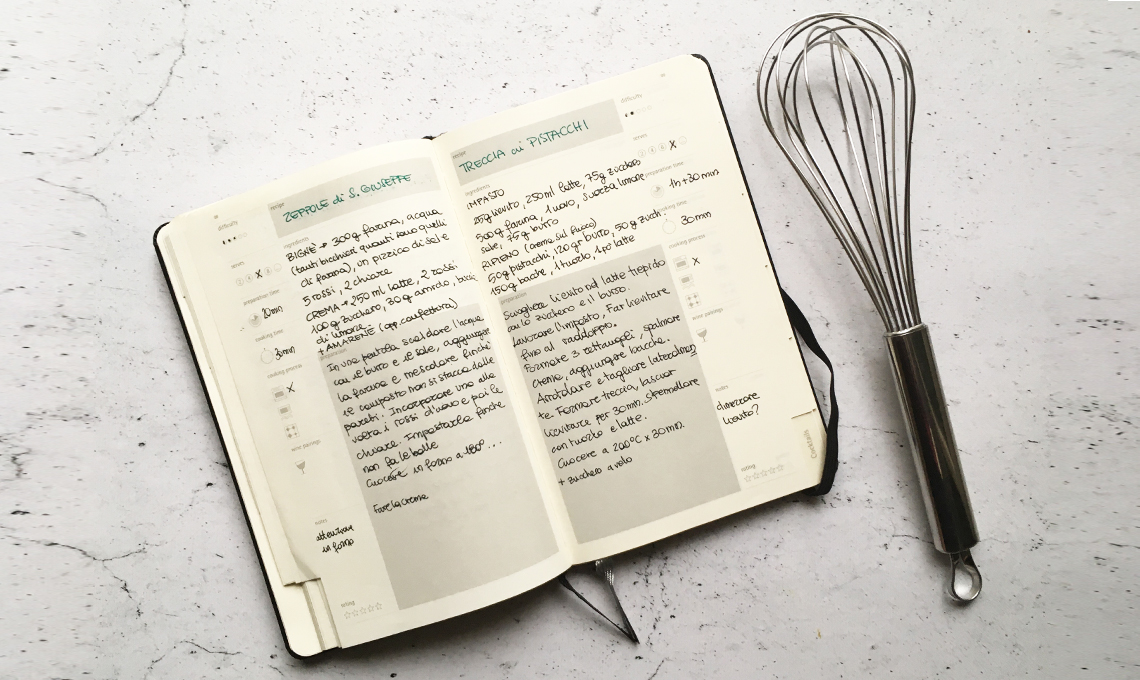 recipe
ZEPPOLE di S. GIUSEPPE
difficulty
serves
preparation time
20min
cooking time
30min
cooking process
wine pairings
notes
attenzione
in forno
rating
ingredients
BIGNÈ → 300g farina, acqua
(tanti bicchieri quanti sono quelli
di farina), un pizzico di sale
5 rossi, 2 chiare
CREMA → 250 ml latte, 2 rossi
100g zucchero, 30g amido,
di limone
+ AMARENE (opp. confettura)
preparation
In una pentola scaldare l'acqua
con il burro e il sale, aggiungere
la farina e mescolare finché
il composto non si stacca dalle
pareti. Incorporare uno alla
volta i rossi d'uovo e poi le
chiare. Impastarla finché
non fa le bolle
Cuocere in forno a 180°...
Fare la crema
recipe
TRECCIA ai PISTACCHI
difficulty
serves
preparation time
1h+30min
cooking time
30min
cooking process
wine pairings
notes
dimezzare
lievito?
rating
Cocktails
ingredients
IMPASTO
25g lievito, 250ml latte, 75g zucchero
500g farina, 1 uovo, scorza limone
sale, 75g burro
RIPIENO (crema sul fuoco)
50g pistacchi, 120gr burro, 50g zucch.
150g bacche, 1 tuorlo, 1 po' latte
preparation
Sciogliere lievito nel latte tiepido
con lo zucchero e il burro.
Lavorare l'impasto, Far lievitare
fino al raddoppio.
Formare 3 rettangoli, spalmare
crema, aggiungere bacche.
Arrotolare e tagliare lateralmen
te. Formare treccia, lasciar
lievitare per 30min. Spennellare
con tuorlo e latte.
Cuocere a 200°C x 30min.
+ zucchero a velo